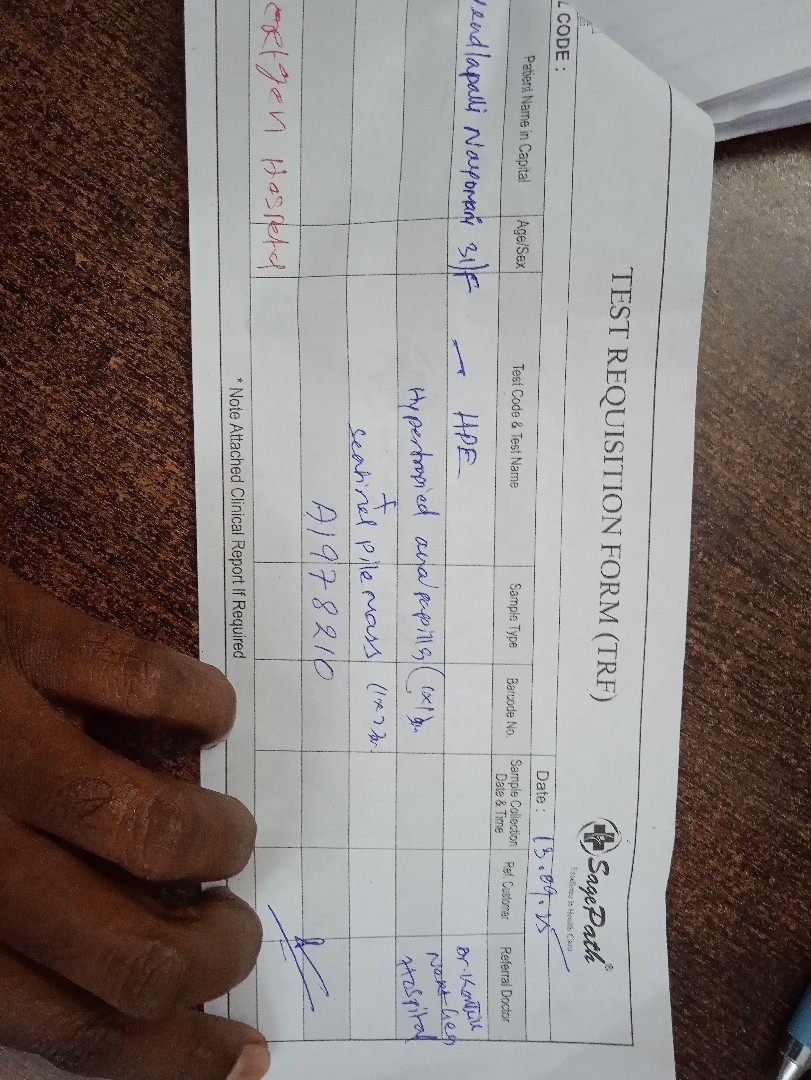 TEST REQUISITION FORM (TRF)
SagePath®
Excellence In Health Care
L CODE :
Date : 13.09.25
Patient Name in Capital Age/Sex Test Code & Test Name Sample Type Barcode No. Sample Collection Date & Time Ref. Customer Referral Doctor
31/F HPE Dr.
Hypertropied anal (1x1)
Hospital
+
sentinel pile mass
A1978210
Hospital
* Note Attached Clinical Report If Required